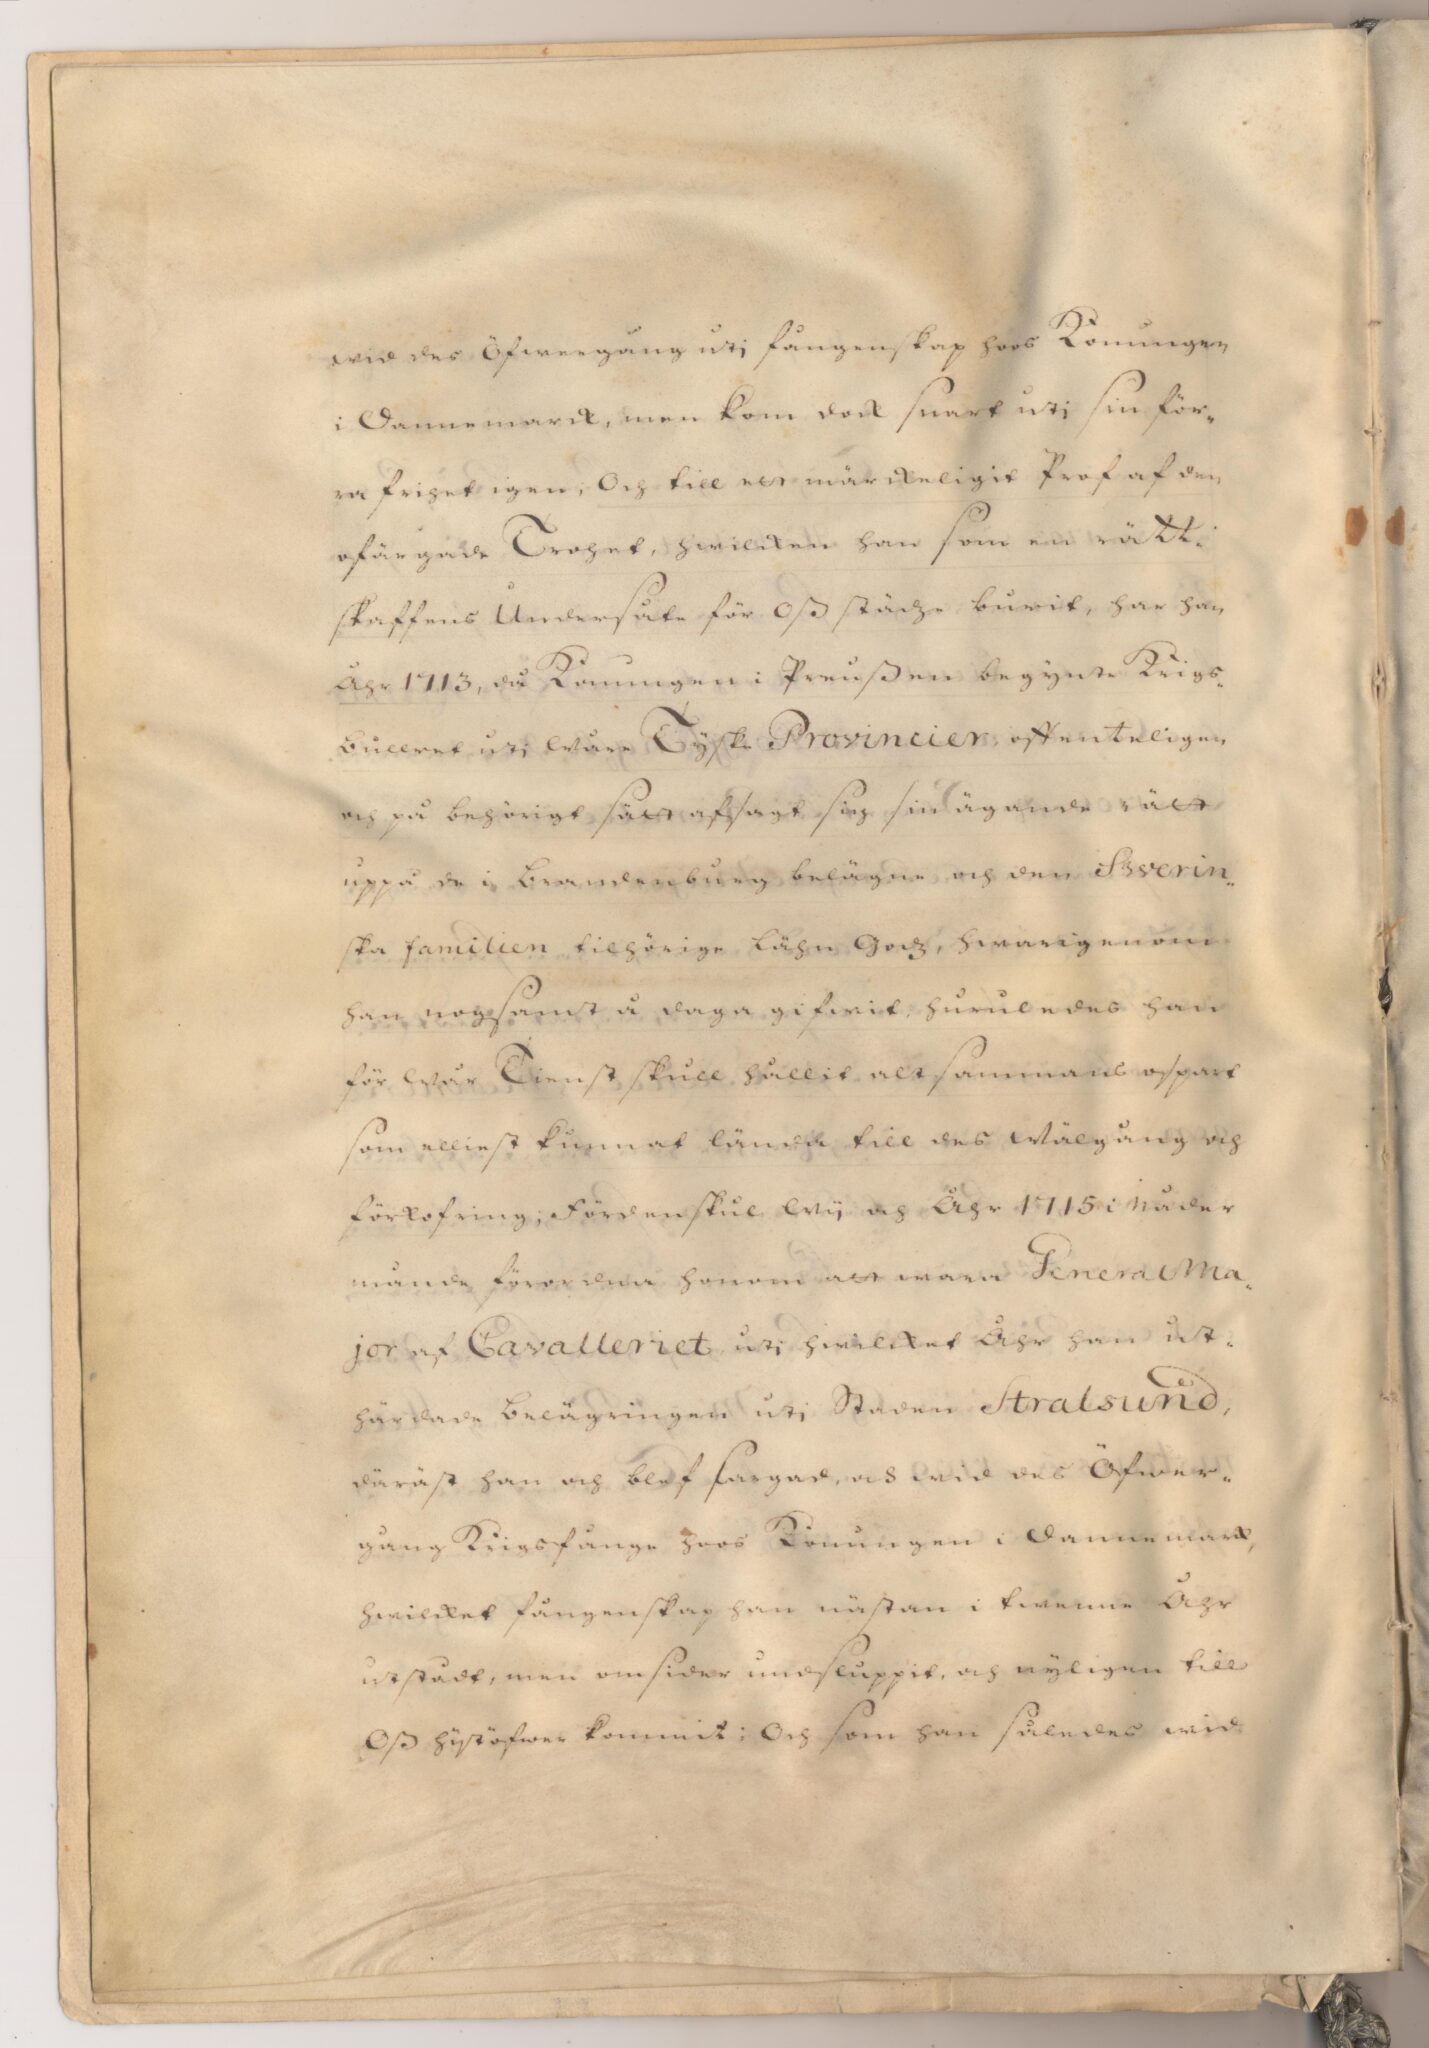 wid des Öfwergång uti fångenskap hoos Konungen
i Dannemarck, men kom dock snart uti sin för-
ra frihet igen; Och till ett märckeligit Prof af den
ofärgade Trohet, hwilcken han som en rätt-
skaffens Undersåte för Oß städze burit, har han
Åhr 1713, då Konungen i Preußen begynte Krigs-
bullret uti Wåre Tyske Provincier, offenteligen
och på behörigt sätt afsagt sig sin ägande rätt
uppå de i Brandenburg belägne och den Sverin-
ska familien tilhörige Lähn Godz, hwarigenom
han nogsamt å daga gifwit, huruledes han
för Wår Tienst skull hållit altsammans ospart
som elliest kunnat lända till des Wälgång och
förkofring; Fördenskul Wij och Åhr 1715 i Nåder
månde förordna honom att wara General Ma-
jor af Cavalleriet, uti hwilcket Åhr han ut-
härdade Belägringen uti Staden Stralsund,
däräst han och blef sargad, och wid des Öfwer-
gång Krigsfånge hoos Konungen i Dannemarck,
hwilcket fångenskap han nästan i twenne Åhr
utstådt, men omsider undsluppit, och nyligen till
Oß hijtöfwer kommit; Och som han således wid